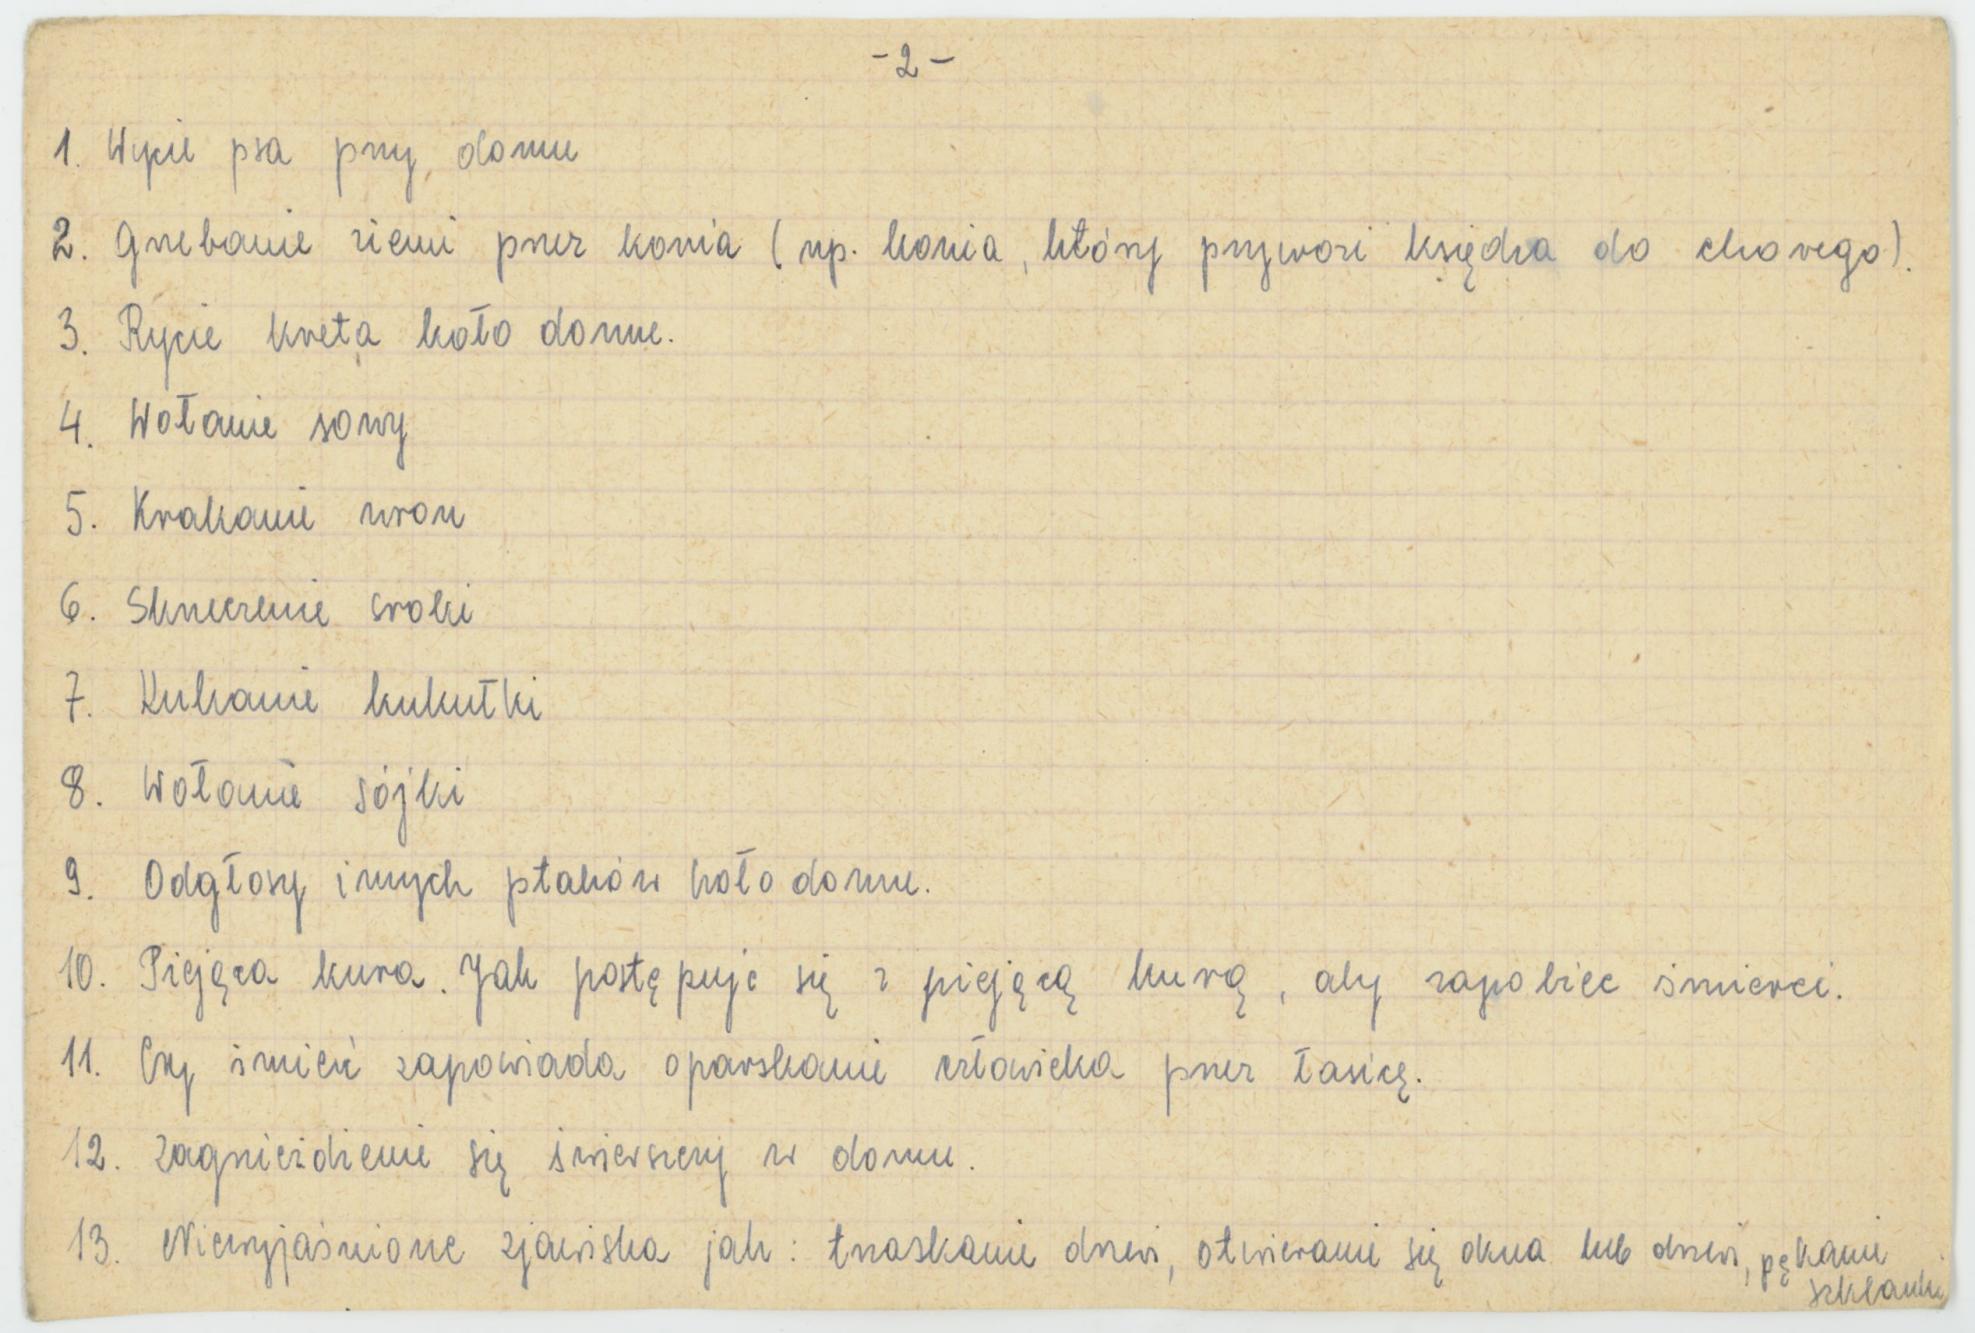 - 2 -
1. Wycie psa przy domu
2. Grzebanie ziemi przez konia (np. konia, który przywozi księdza do chorego).
3. Rycie kreta koło domu.
4. Wołanie sowy
5. Krakanie wron
6. Skrzeczenie sroki
7. Kukanie kukułki
8. Wołanie sójki
9. Odgłosy innych ptaków koło domu.
10. Piejąca kura. Jak postępuje się z piejącą kurą, aby zapobiec śmierci.
11. Czy śmierć zapowiada oparskanie człowieka przez łasicę.
12. Zagnieżdżenie się świerszczy w domu.
13. Niewyjaśnione zjawiska jak: trzaskanie drzwi, otwieranie się okna lub drzwi, pękanie
szklanki